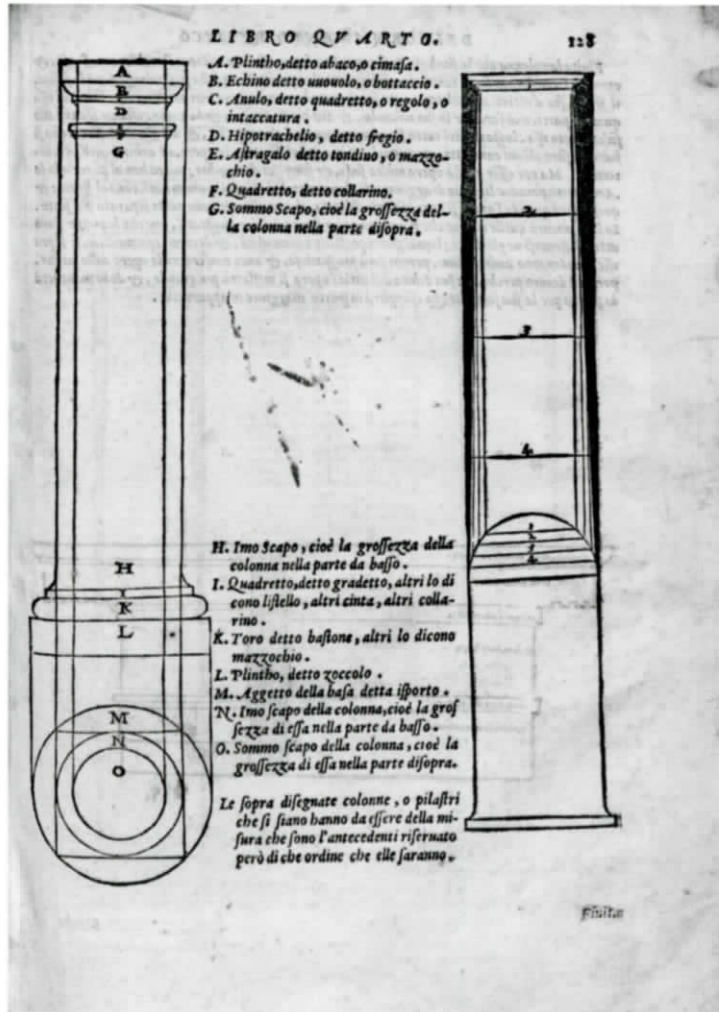 LIBRO QVARTO. 128
A. Plintho, detto abaco, o cimasa.
B. Echino detto uuouolo, o bottaccio.
C. Anulo, detto quadretto, o regolo, o
intaccatura.
D. Hipotrachelio, detto fregio.
E. Astragalo detto tondino, o mazzo-
chio.
F. Quadretto, detto collarino.
G. Sommo Scapo, cioè la grossezza del-
la colonna nella parte disopra.
A
B
D
G
2
3
4
H. Imo Scapo, cioè la grossezza della
colonna nella parte da basso.
I. Quadretto, detto gradetto, altri lo di
cono listello, altri cinta, altri colla-
rino.
K. Toro detto bastone, altri lo dicono
mazzochio.
L. Plintho, detto zoccolo.
M. Aggetto della basa detta isporto.
N. Imo scapo della colonna, cioè la gros
sezza di essa nella parte da basso.
O. Sommo scapo della colonna, cioè la
grossezza di essa nella parte disopra.
H
K
L
M
N
O
Le sopra disegnate colonne, o pilastri
che si siano hanno da essere della mi-
sura che sono l'antecedenti riseruato
però di che ordine che elle saranno.